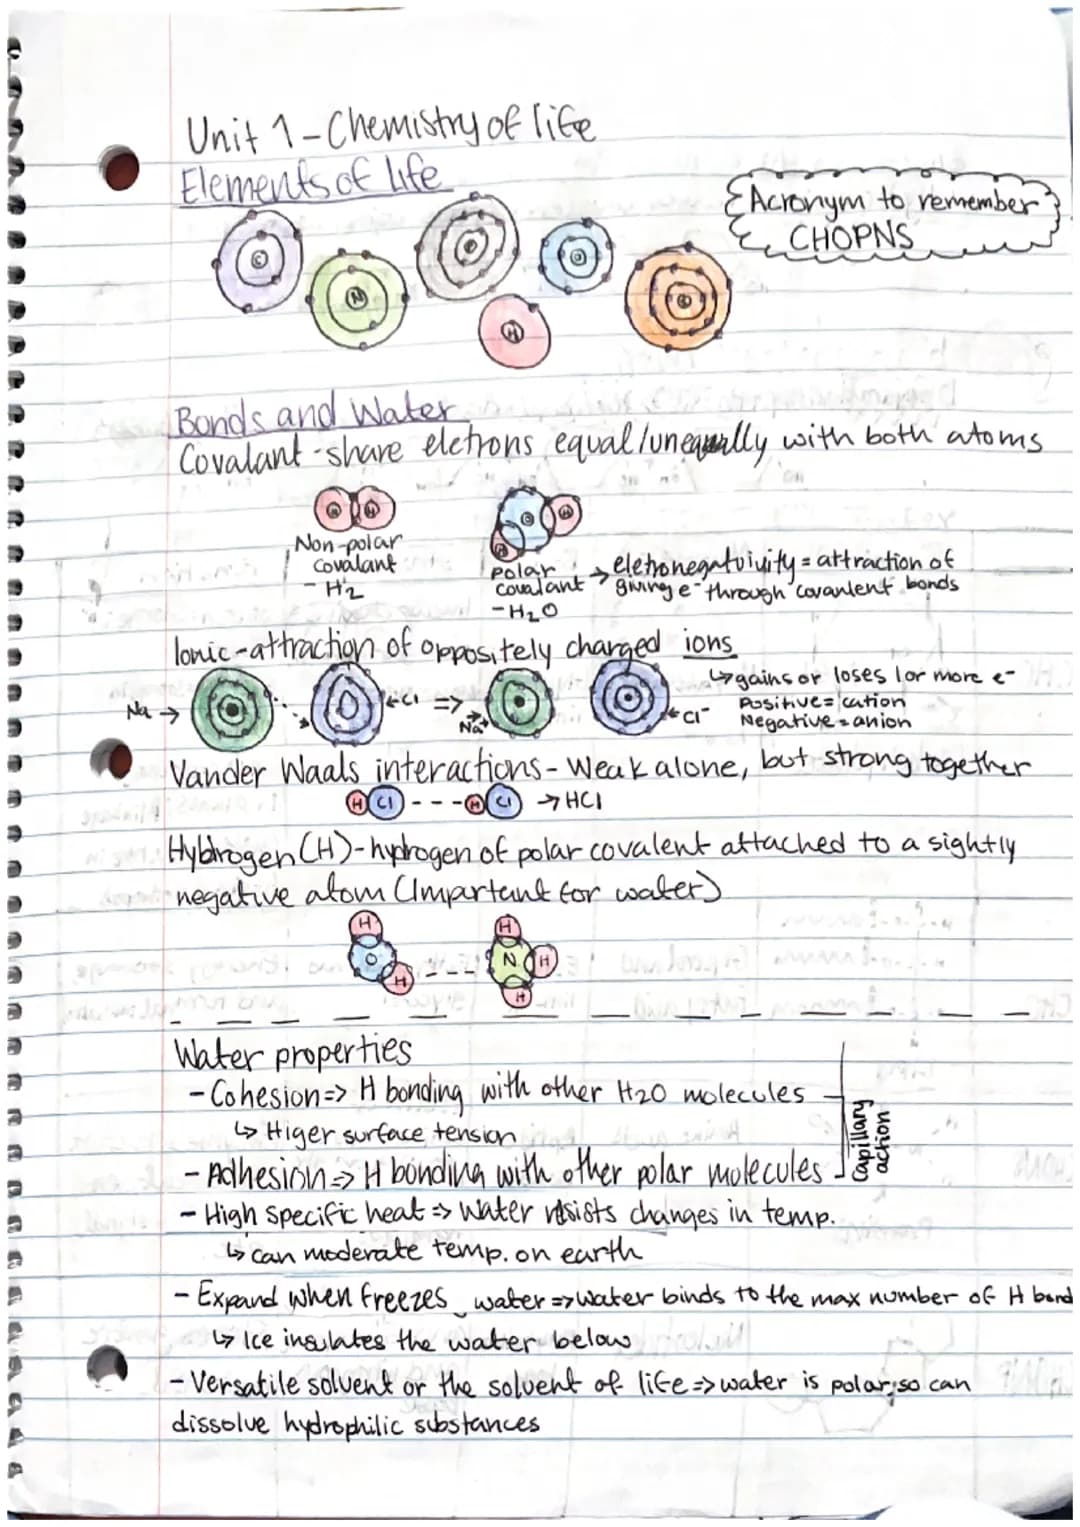 Unit 1 - Chemistry of life
Elements of life
Acronym to remember
CHOPNS
C
N
P
O
H
S
Bonds and Water
Covalant - share eletrons equal/unequally with both atoms
H H
O H
H
Non-polar
covalant
- H2
Polar
covalant
- H2O
→ eletronegatuivity = attraction of
giving e- through covanlent bonds
Ionic - attraction of oppositely charged ions
↳ gains or loses 1 or more e-
Positive = cation
Negative = anion
Na →
← Cl =>
Na+
← Cl-
Vander Waals interactions - Weak alone, but strong together
H Cl - - - H Cl → HCl
Hybrogen (H) - hydrogen of polar covalent attached to a sightly
negative atom (Impartant for water)
H
O
H
- - -
H
N H
H
Water properties
- Cohesion => H bonding with other H2O molecules
↳ Higer surface tension
- Adhesion => H bonding with other polar molecules
Capillary
action
- High specific heat => Water resists changes in temp.
↳ can moderate temp. on earth
- Expand when freezes water => water binds to the max number of H bond
↳ Ice insulates the water below
- Versatile solvent or the solvent of life => water is polar, so can
dissolve hydrophilic substances